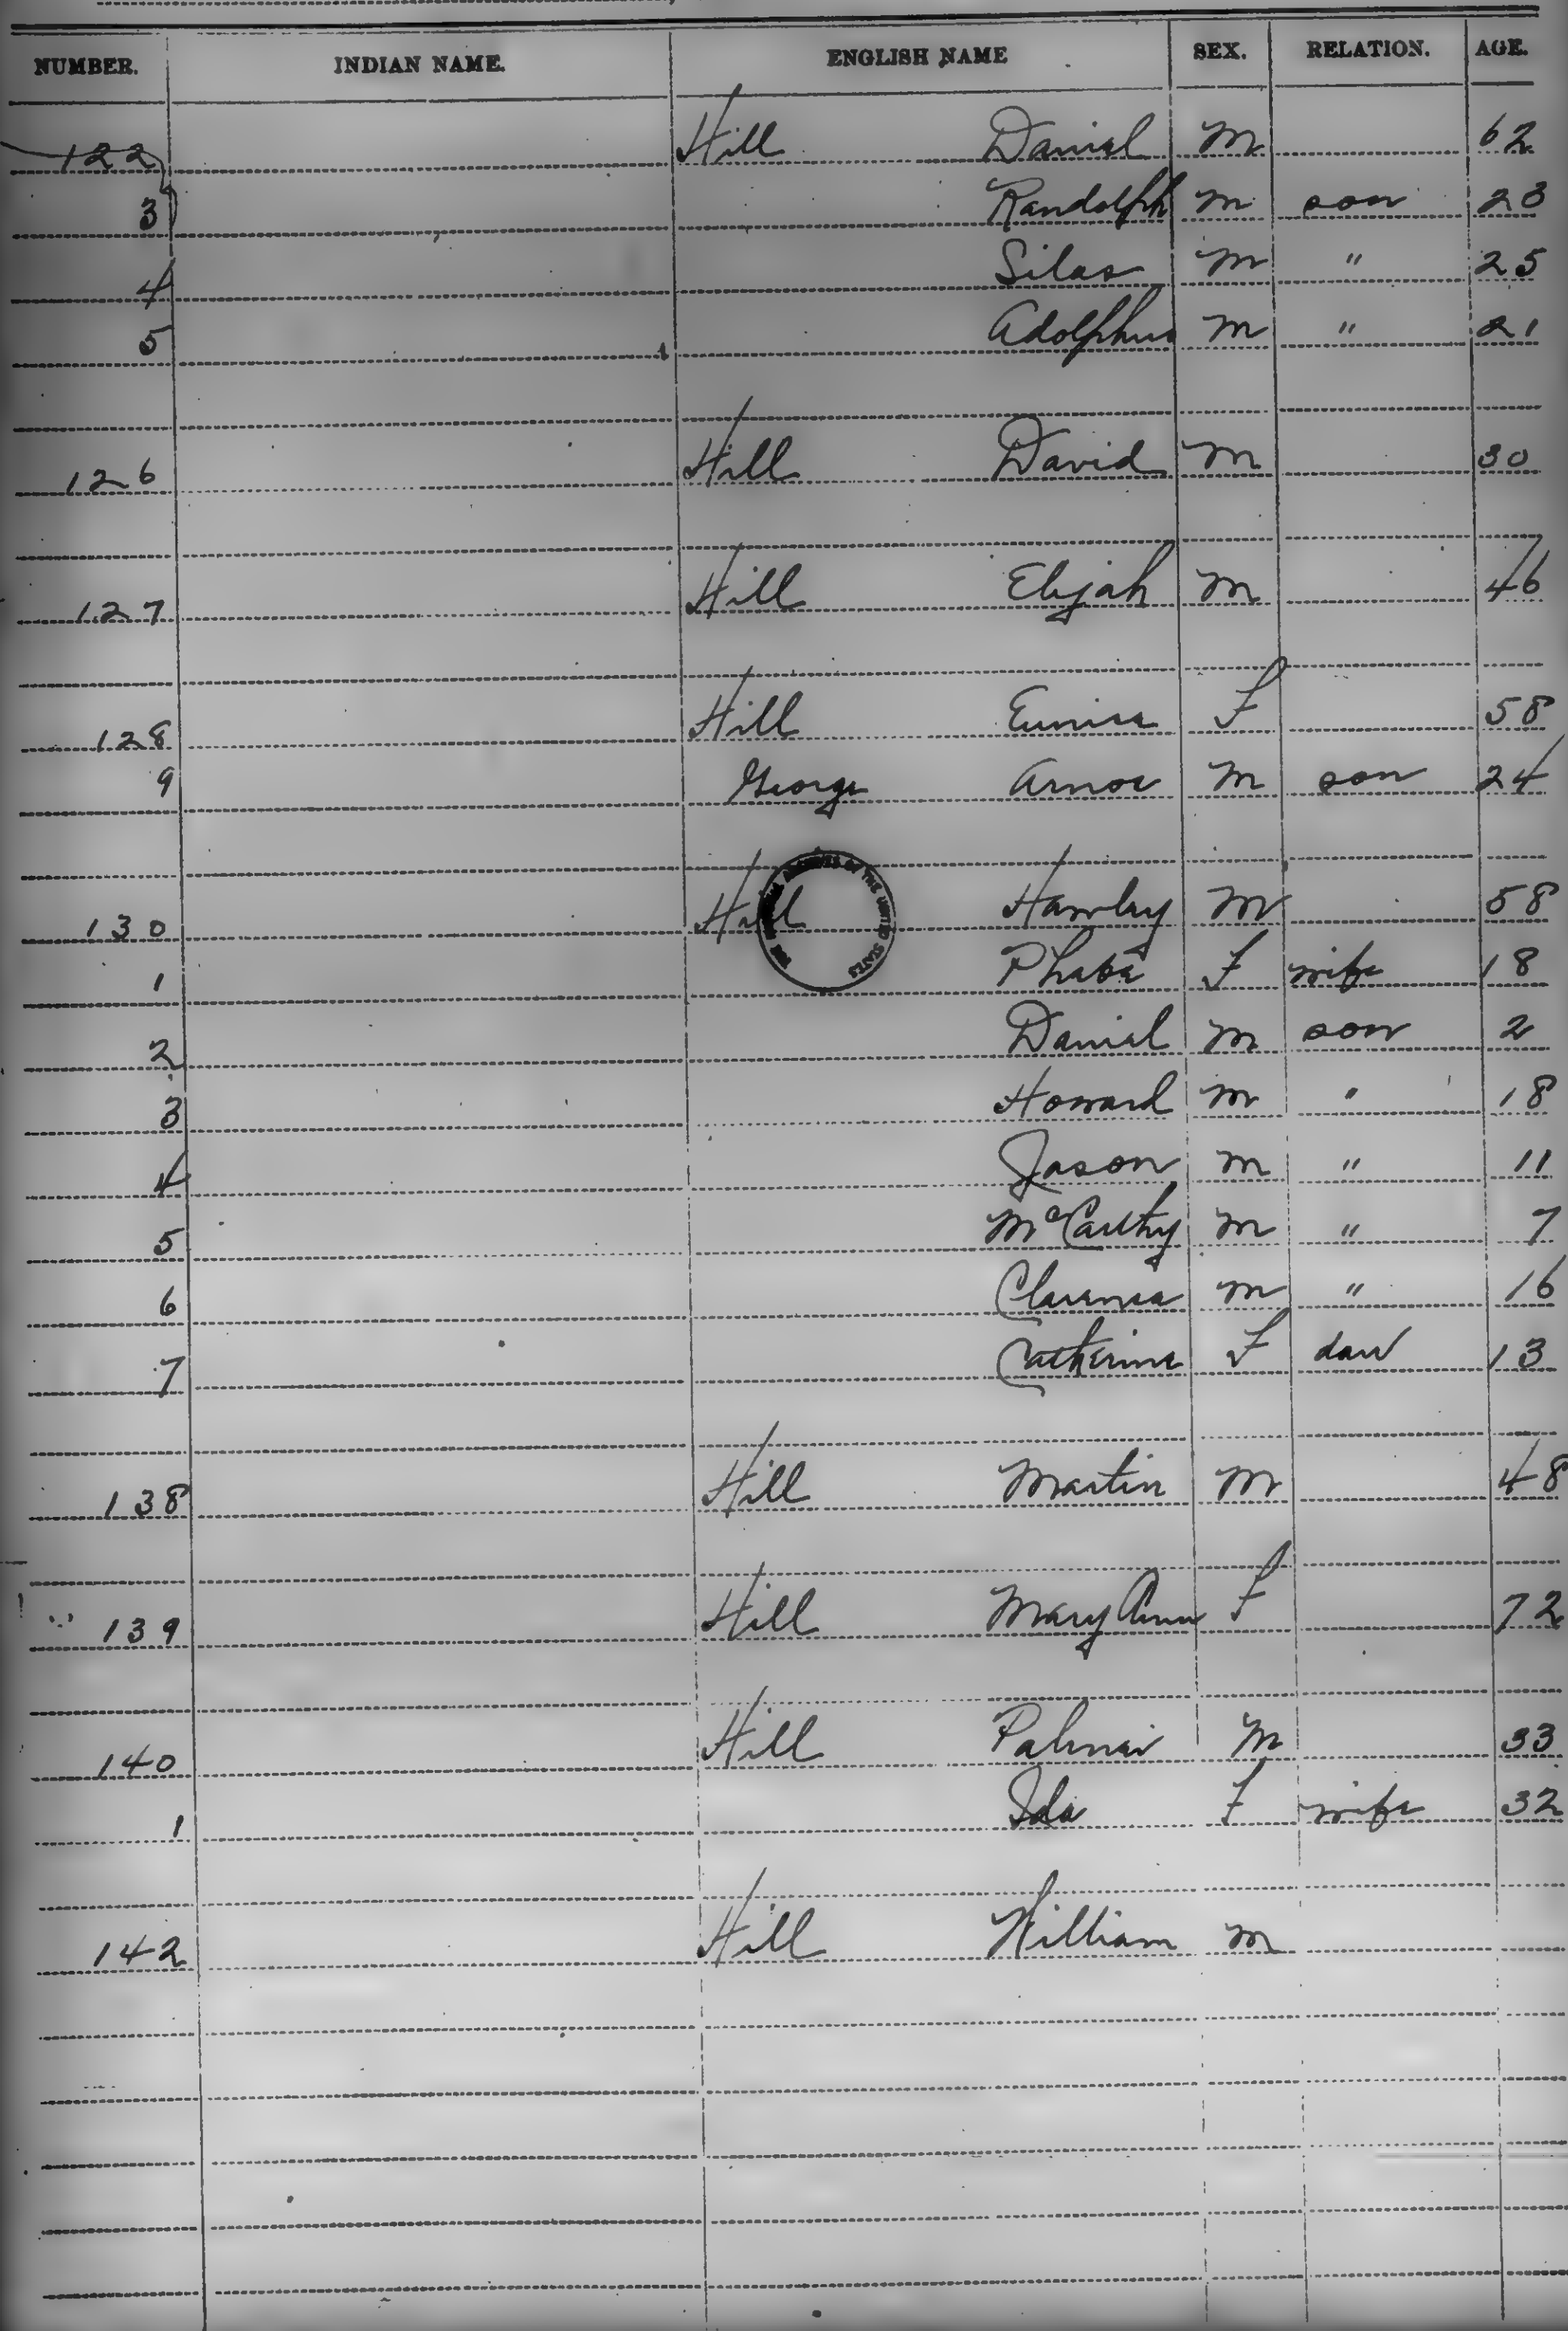 NUMBER. INDIAN NAME. ENGLISH NAME SEX. RELATION. AGE.
122 Hill Daniel M 62
3 Randolph M son 23
4 Silas M " 25
5 Adolphus M " 21
126 Hill David M 30
127 Hill Elijah M 46
128 Hill Eunice F 58
9 George Amos M son 24
130 Hill Hawley M 58
THE NATIONAL ARCHIVES OF THE UNITED STATES
1 Phebe F wife 18
2 Daniel M son 2
3 Howard M " 18
4 Jason M " 11
5 McCarthy M " 7
6 Clarence M " 16
7 Catherine F dau 13
138 Hill Martin M 48
139 Hill Mary Ann F 72
140 Hill Palmer M 33
1 Ida F wife 32
142 Hill William M